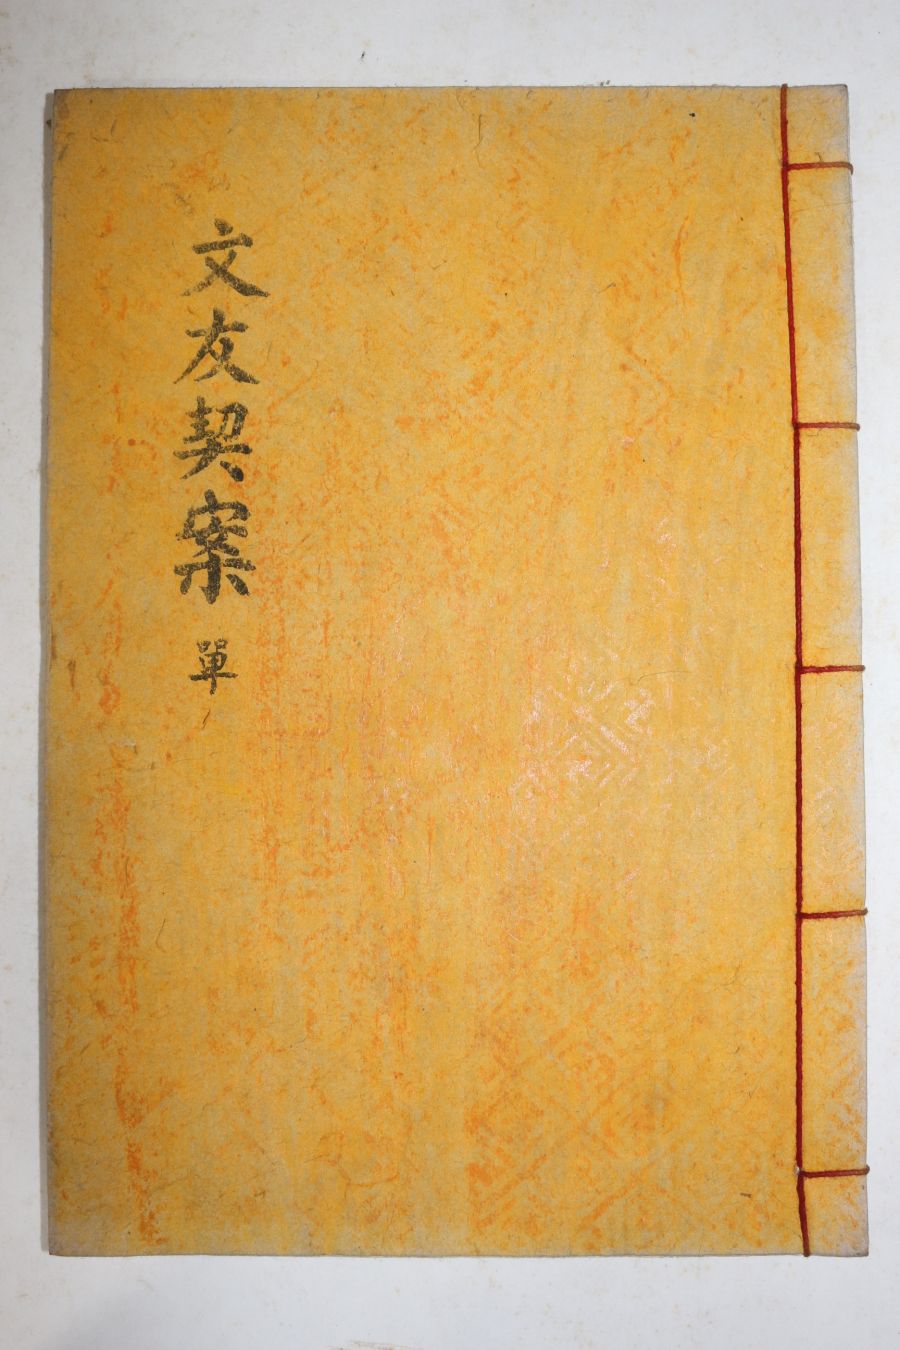 文友契案 單